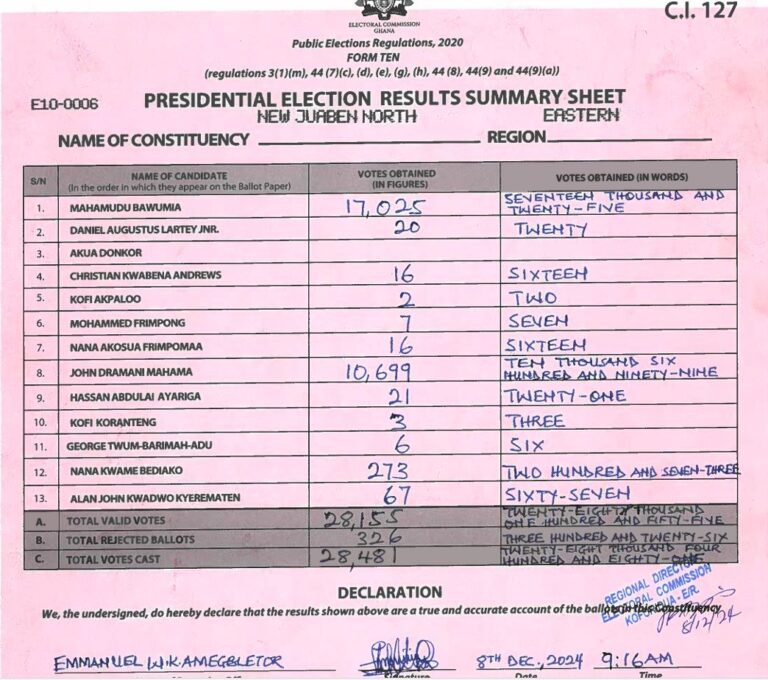 C.I. 127
ELECTORAL COMMISSION
GHANA
Public Elections Regulations, 2020
FORM TEN
(regulations 3(1)(m), 44 (7)(c), (d), (e), (g), (h), 44 (8), 44(9) and 44(9)(a))
E10-0006 PRESIDENTIAL ELECTION RESULTS SUMMARY SHEET
NEW JUABEN NORTH EASTERN
NAME OF CONSTITUENCY REGION
S/N NAME OF CANDIDATE (In the order in which they appear on the Ballot Paper) VOTES OBTAINED (IN FIGURES) VOTES OBTAINED (IN WORDS)
1. MAHAMUDU BAWUMIA 17,025 SEVENTEEN THOUSAND AND TWENTY-FIVE
2. DANIEL AUGUSTUS LARTEY JNR. 20 TWENTY
3. AKUA DONKOR
4. CHRISTIAN KWABENA ANDREWS 16 SIXTEEN
5. KOFI AKPALOO 2 TWO
6. MOHAMMED FRIMPONG 7 SEVEN
7. NANA AKOSUA FRIMPOMAA 16 SIXTEEN
8. JOHN DRAMANI MAHAMA 10,699 TEN THOUSAND SIX HUNDRED AND NINETY-NINE
9. HASSAN ABDULAI AYARIGA 21 TWENTY-ONE
10. KOFI KORANTENG 3 THREE
11. GEORGE TWUM-BARIMAH-ADU 6 SIX
12. NANA KWAME BEDIAKO 273 TWO HUNDRED AND SEVEN-THREE
13. ALAN JOHN KWADWO KYEREMATEN 67 SIXTY-SEVEN
A. TOTAL VALID VOTES 28,155 TWENTY-EIGHT THOUSAND ONE HUNDRED AND FIFTY-FIVE
B. TOTAL REJECTED BALLOTS 326 THREE HUNDRED AND TWENTY-SIX
C. TOTAL VOTES CAST 28,481 TWENTY-EIGHT THOUSAND FOUR HUNDRED AND EIGHTY-ONE
DECLARATION
We, the undersigned, do hereby declare that the results shown above are a true and accurate account of the ballots in this Constituency
REGIONAL DIRECTOR
ELECTORAL COMMISSION
KOFORIDUA - E/R.
8/12/24
EMMANUEL W.K. AMEGBLETOR 8TH DEC., 2024 9:16AM
Signature Date Time